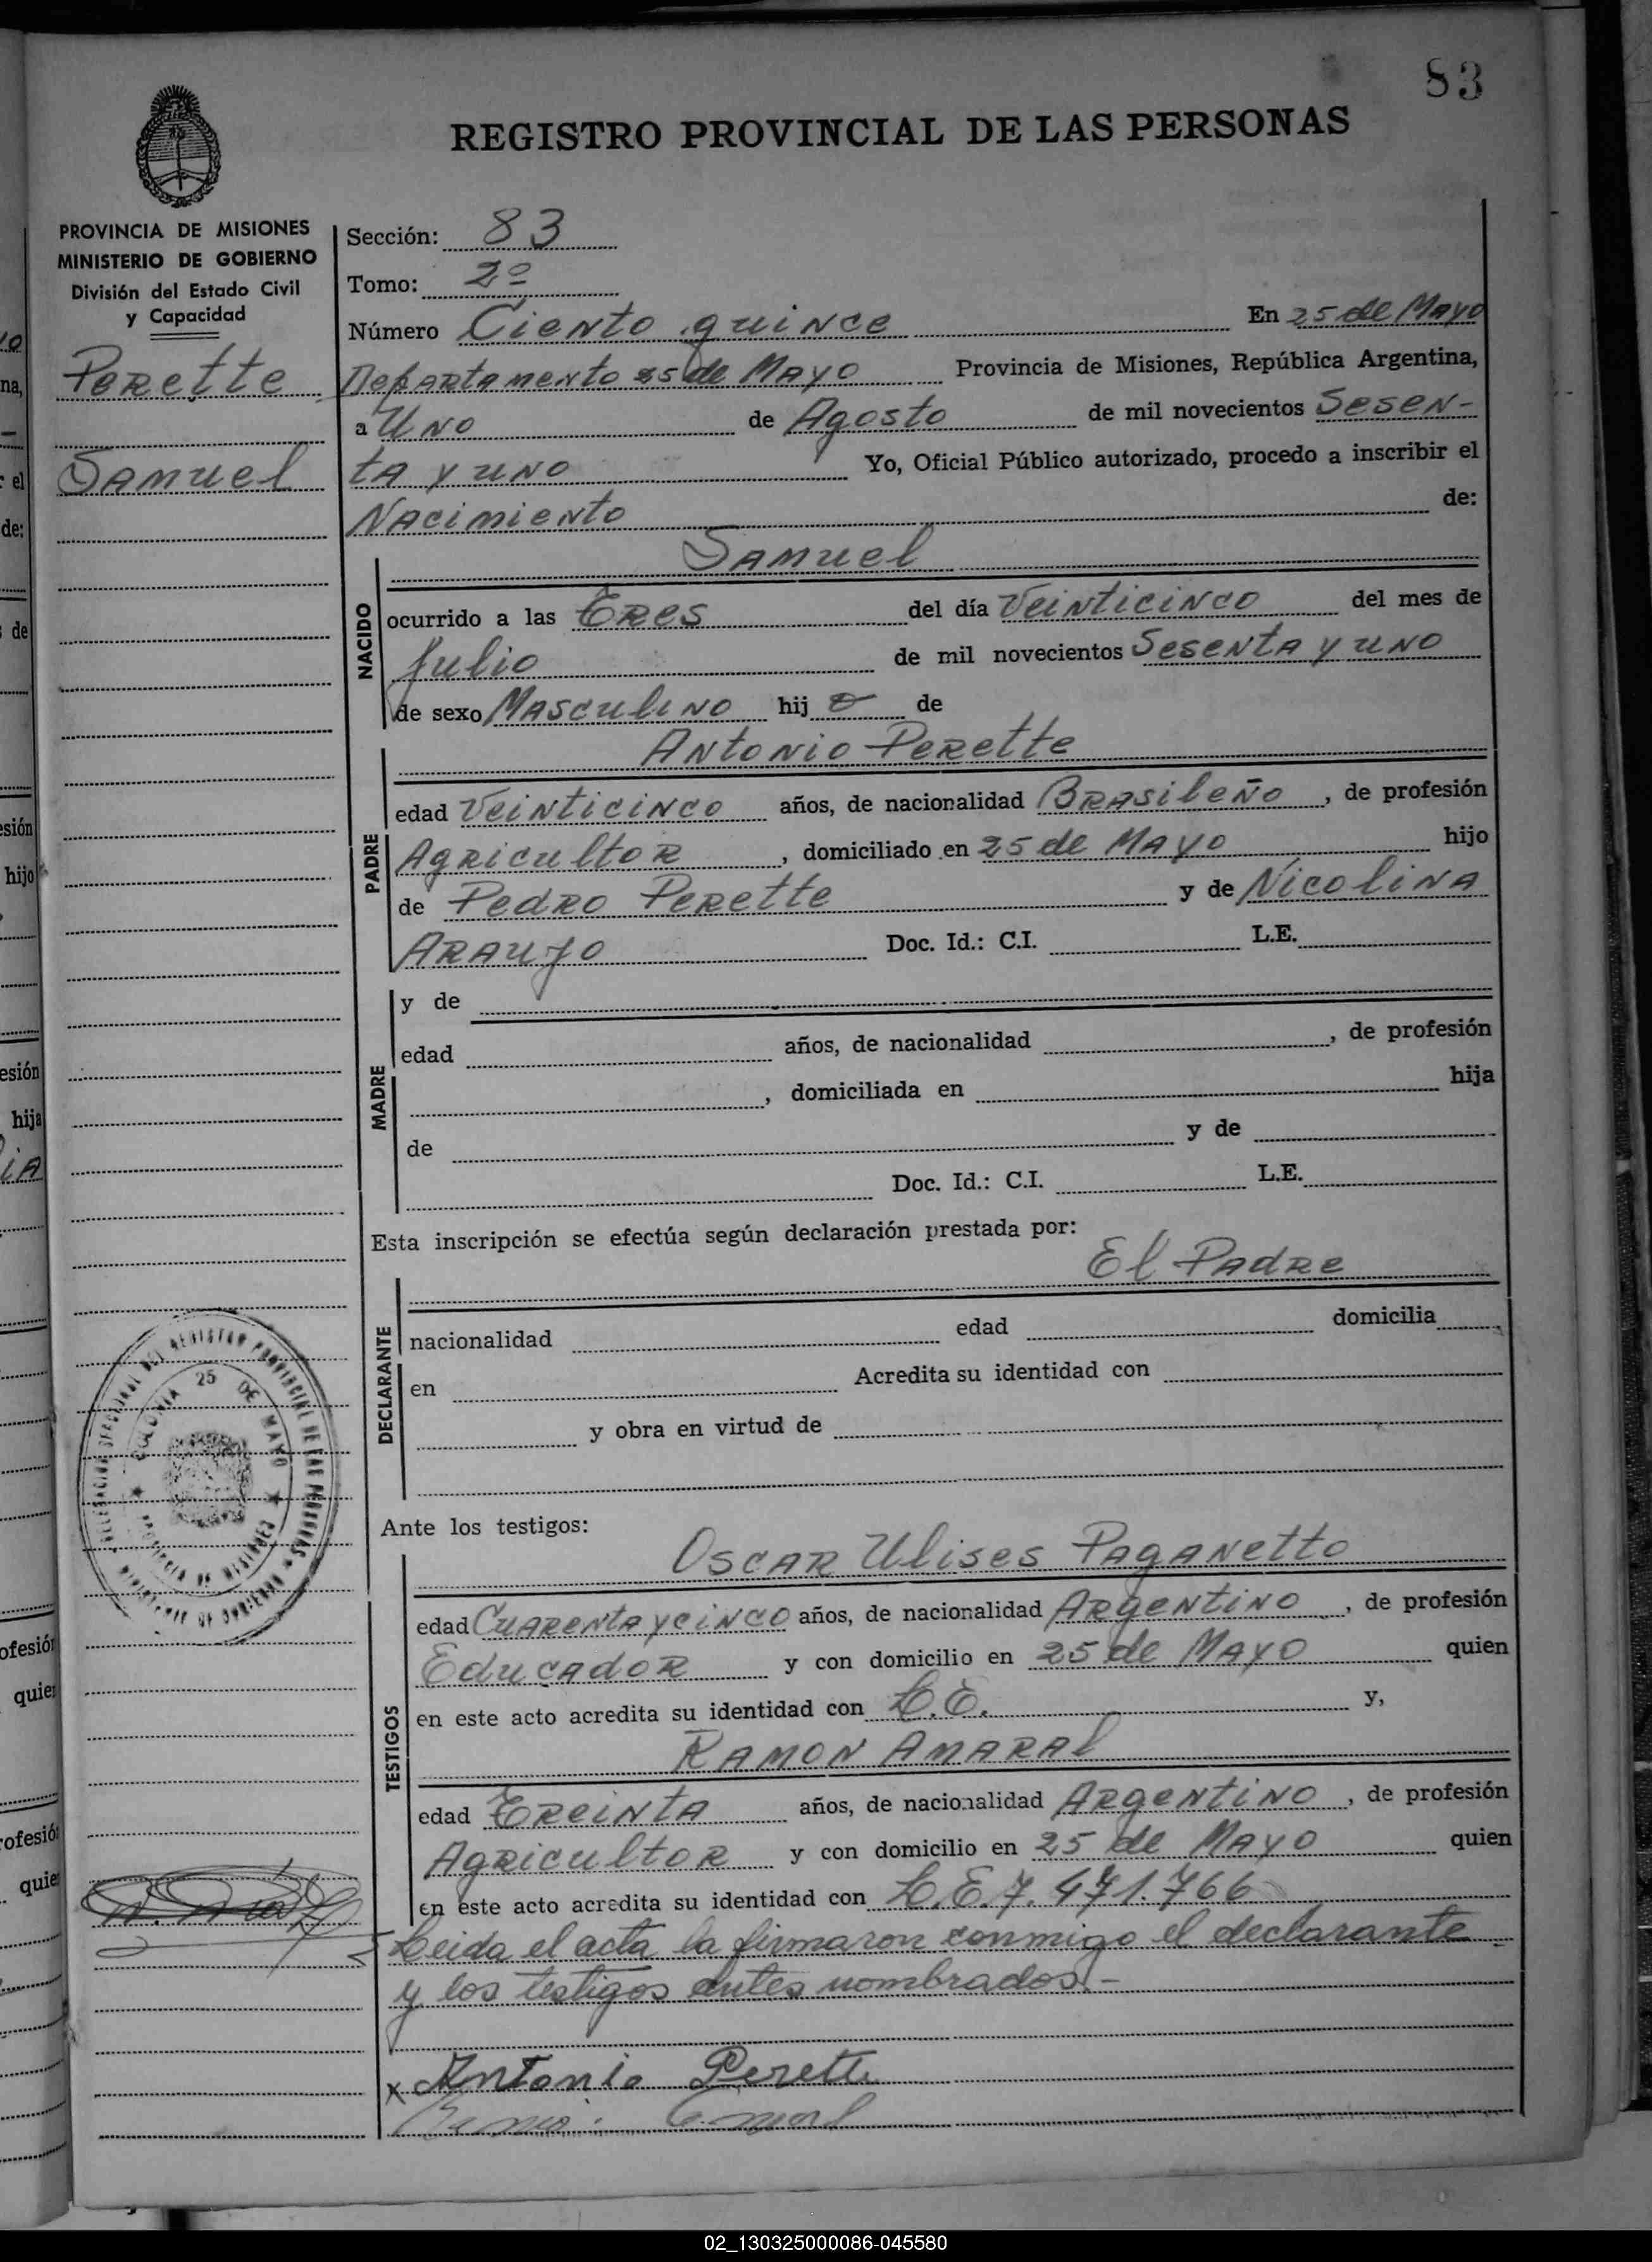 83
REGISTRO PROVINCIAL DE LAS PERSONAS
PROVINCIA DE MISIONES
MINISTERIO DE GOBIERNO
División del Estado Civil
y Capacidad
Perette
Samuel
Sección: 83
Tomo: 2º
Número Ciento quince En 25 de Mayo
Departamento 25 de Mayo Provincia de Misiones, República Argentina,
a Uno de Agosto de mil novecientos Sesen-
ta y uno Yo, Oficial Público autorizado, procedo a inscribir el
Nacimiento de:
Samuel
NACIDO
ocurrido a las Tres del día Veinticinco del mes de
Julio de mil novecientos Sesenta y uno
de sexo Masculino hij o de
Antonio Perette
PADRE
edad Veinticinco años, de nacionalidad Brasileño, de profesión
Agricultor, domiciliado en 25 de Mayo hijo
de Pedro Perette y de Nicolina
Araujo Doc. Id.: C.I. L.E.
MADRE
y de
edad años, de nacionalidad , de profesión
, domiciliada en hija
de y de
Doc. Id.: C.I. L.E.
Esta inscripción se efectúa según declaración prestada por:
El Padre
DECLARANTE
nacionalidad edad domicilia
en Acredita su identidad con
y obra en virtud de
Ante los testigos:
Oscar Ulises Paganetto
TESTIGOS
edad Cuarenta y cinco años, de nacionalidad Argentino, de profesión
Educador y con domicilio en 25 de Mayo quien
en este acto acredita su identidad con L.E. y,
Ramon Amaral
edad Treinta años, de nacionalidad Argentino, de profesión
Agricultor y con domicilio en 25 de Mayo quien
en este acto acredita su identidad con L.E. 7.471.766
Leida el acta la firmaron conmigo el declarante
y los testigos antes nombrados.-
x Antonio Perette
COLONIA 25 DE MAYO
PROVINCIA DE MISIONES
02_130325000086-045580